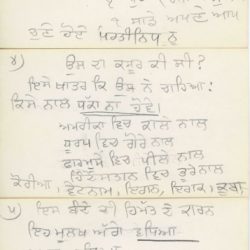 ੧ ਸਾਡੇ ਅਪਣੇ ਆਪ
ਚੁਣੇ ਹੋਏ ਪ੍ਰਤੀਨਿਧ ਨੂੰ
੪) ਉਸ ਦਾ ਕਸੂਰ ਕੀ ਸੀ?
ਇਸੇ ਖਾਤਰ ਕਿ ਉਸ ਨੇ ਕਹਿਆ:
ਕਿਸੇ ਨਾਲ ਧੱਕਾ ਨਾ ਹੋਵੇ।
ਅਮਰੀਕਾ ਵਿਚ ਕਾਲੇ ਨਾਲ
ਯੂਰਪ ਵਿਚ ਗੋਰੇ ਨਾਲ
ਵਿਚ ਪੀਲੇ ਨਾਲ
ਹਿੰਦੋਸਤਾਨ ਵਿਚ ਭੂਰੇ ਨਾਲ
ਕੋਰੀਆ, ਵੇਟਨਾਮ, ਇਰਾਨ, ਇਰਾਕ, ਕੂਬਾ
੫) ਇਸ ਬੰਦੇ ਦੀ ਹਿੰਮਤ ਦੇ ਕਾਰਨ
ਇਹ ਮੁਲਖ ਅੱਗੇ ਵਧਿਆ